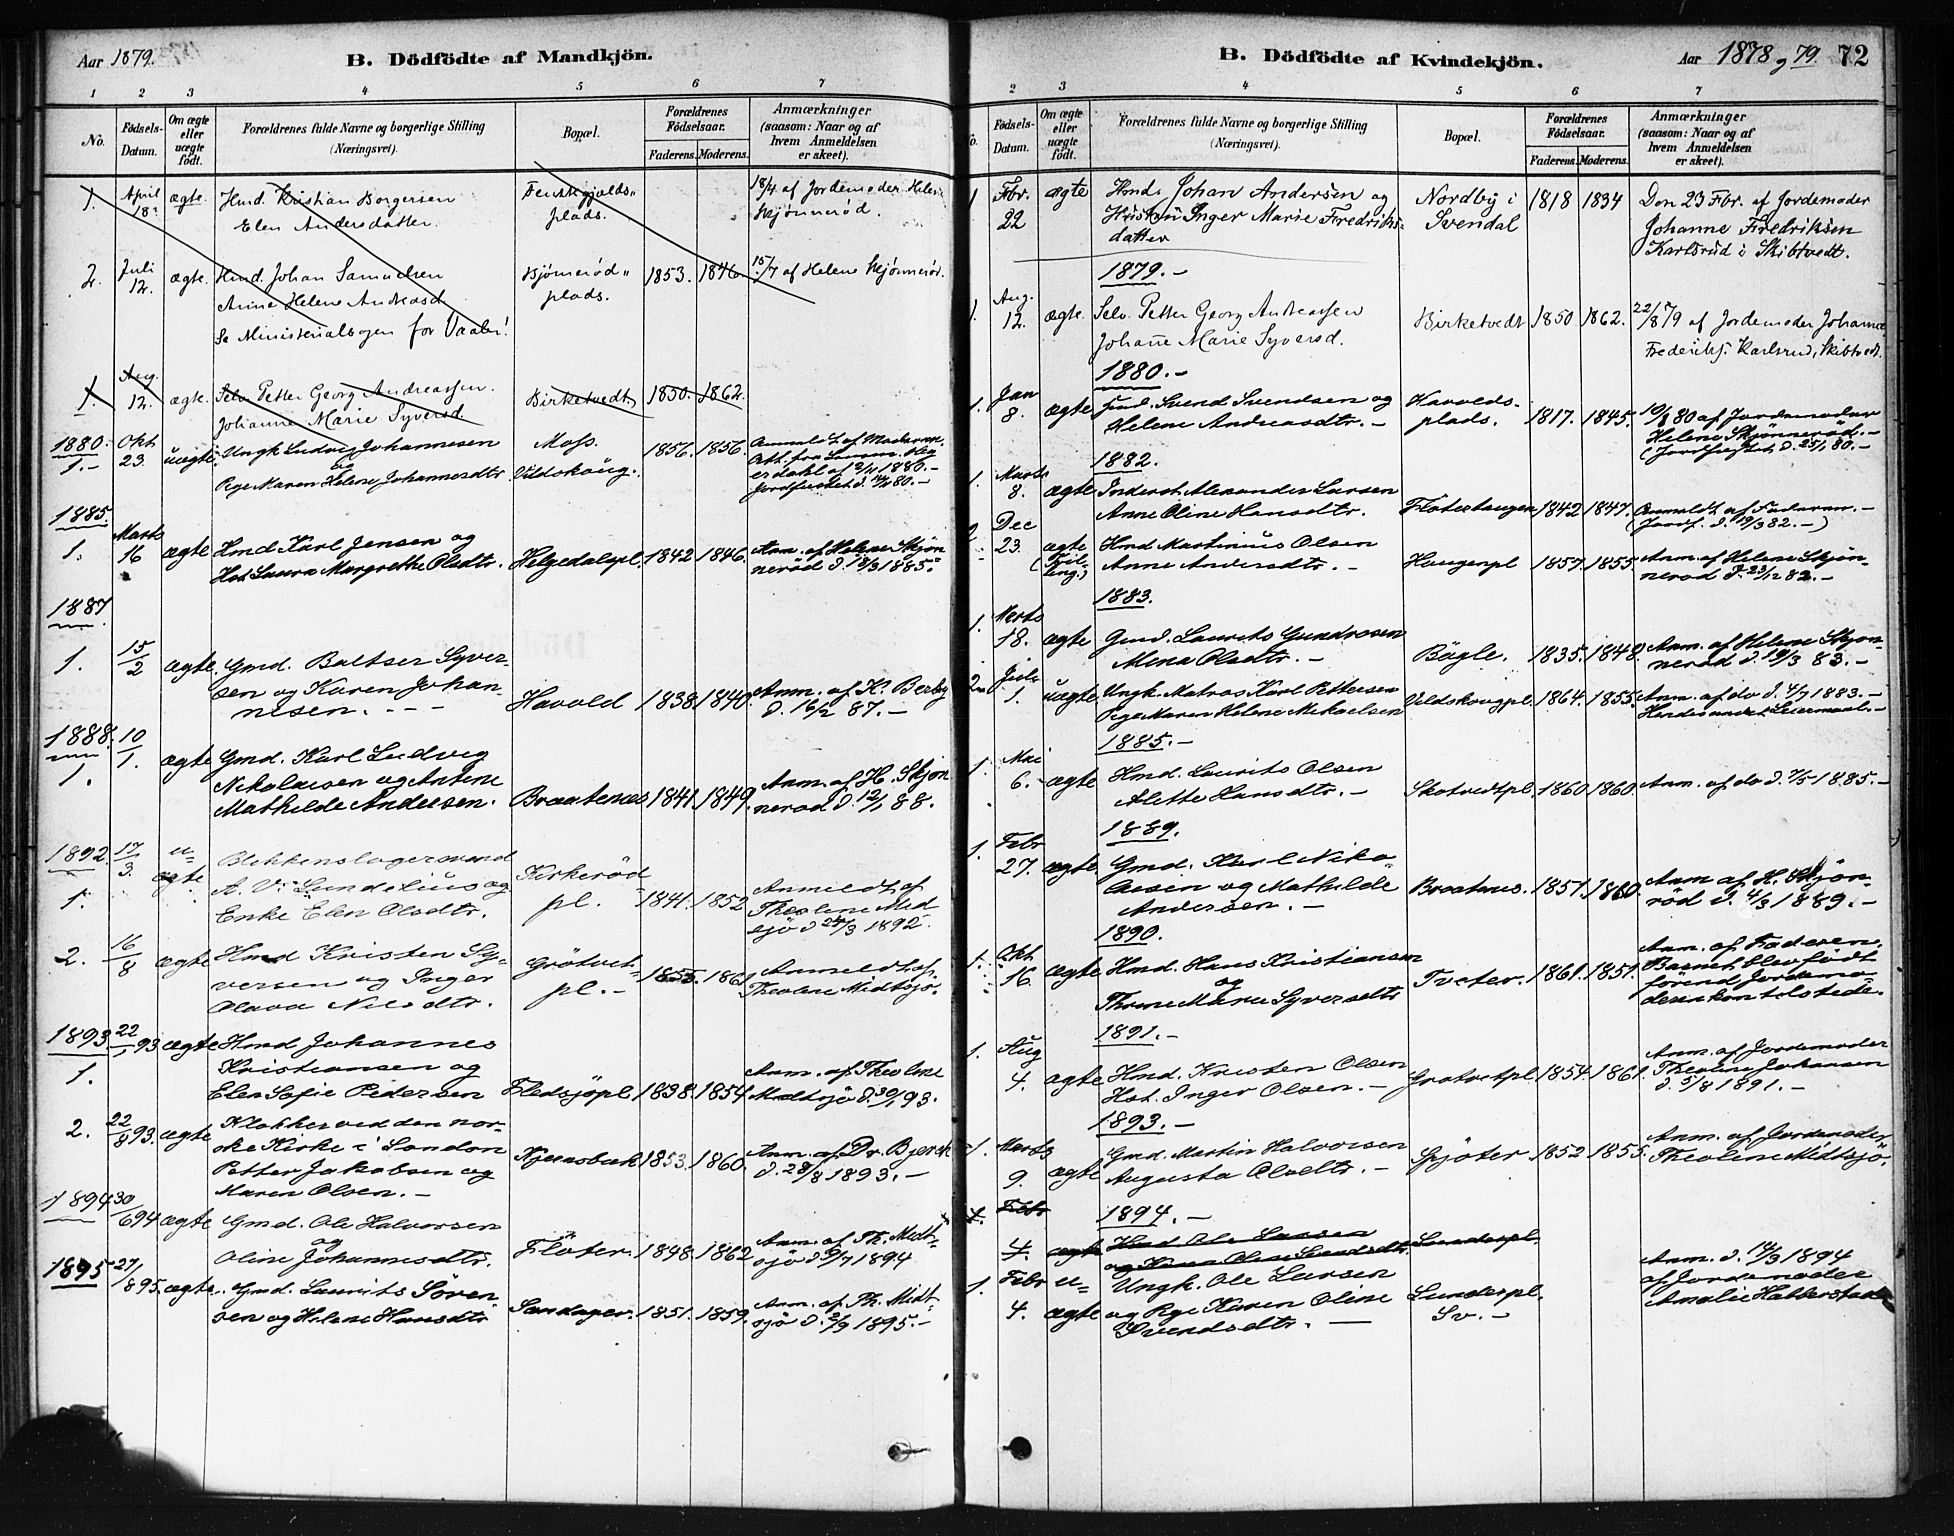 Aar 1879.
B. Dödfödte af Mandkjön.
1 2 3 4 5 6 7
No.
Födsels-Datum.
Om ægte eller uægte födt.
Forældrenes fulde Navne og borgerlige Stilling
(Næringsvei).
Bopæl.
Forældrenes Födselsaar.
Faderens. Moderens.
Anmærkninger
(saasom: Naar og af
hvem Anmeldelsen
er skeet).
1. April 18. ægte. Hmd. Kristian Borgersen
Elen Andersdatter.
plads.
18/4 af Jordemoder Helene
Skjønnerød.
2. Juli 12. ægte. Hmd. Johan Samuelsen
Anne Helene Andreasd.
Se Ministerialbogen for Vaaler!
plads. 1853. 1846
15/7 af Helene Skjønnerød.
1. Aug. 12. ægte. Selv. Petter Georg Andreassen.
Johanne Marie Syversd.
Birketvedt 1850. 1862.
1880.
1.- Okt 23. uægte. Ungk Ludvig Johannesen
og
Pige Maren Helene Johannesdtr.
Moss.
Vildskoug. 1856. 1856.
Anmeldt af Moderen.
Jordfæstet d. 14/11 80.-
1885.
1. Marts 16 ægte Hmd. Karl Jensen og
Hst Laura Margrethe Olsdtr. Helgedalspl. 1842 1846.
Anm. af Helene Skjøn-
nerød d. 18/3 1885.
1887.
1. 15/2 ægte. Gmd. Baltser Syver-
sen og Karen Johan-
nesen. - -
Havold 1838. 1840.
Anm. af K. Berby
d. 16/2 87.-
1888. 10/1.
1. ægte Gmd. Karl Ludvig
Nikolaisen og Antene
Mathilde Andersen. Braatenæs 1841. 1849.
Anm. af H. Skjøn
nerød d. 12/1 88.
1892. 17/3 u-
1. ægte Blikkenslagersvend
A. V. Lundelius og
Enke Elen Olsdtr.
Kirkerød
pl. 1841. 1852
Anmeldt af
Theolene Med
sjö d. 24/3 1892.
2. 16/8 ægte Hmd Kristen Sy-
versen og Inger
Olava Nilsdtr.
Grötvet-
pl.- 1855. 1861
Anmeldt af
Theolene Midtsjö.
1893. 22/1 93 ægte Hmd Johannes
1. Kristiansen og
Elen Sofie Pedersen Fledsjöpl. 1838. 1854
Anm. af Theolene
Midtsjö d. 30/1 93.
2. 22/8 93. ægte Klokker ved den nor-
ske Kirke i London
Petter Jakobsen og
Maren Olsen.-
Kjernsbæk 1853. 1860.
Anm. af Dr. Bjerck
d. 28/8 1893.-
1894 30/6 94 ægte Gmd. Ole Halvorsen
og
Oline Johannesdtr. Flöter. 1848. 1862
Anm. af Th. Midt-
sjö d. 9/7 1894
1895 27/8 95. ægte. Gmd. Laurits Sören-
sen og Helene Hansdtr. Sandager. 1851. 1859.
Anm. af Th. Midt-
sjö d. 2/9 1895.-
B. Dödfödte af Kvindekjön.
Aar 1878 og 79. 72
2 3 4 5 6 7
No.
Födsels-Datum.
Om ægte eller uægte födt.
Forældrenes fulde Navne og borgerlige Stilling
(Næringsvei).
Bopæl.
Forældrenes Födselsaar.
Faderens. Moderens.
Anmærkninger
(saasom: Naar og af
hvem Anmeldelsen
er skeet).
1 Fbr. 22 ægte Hmd. Johan Andersen og
Hustru Inger Marie Fredriks-
datter
Nordby i
Svendal 1818 1834
Den 23 Fbr. af Jordemoder
Johanne Fredriksen
Karlsrud i Skibtvedt.
1879.-
1. Aug. 12. ægte. Selv. Petter Georg Andreassen
Johanne Marie Syversd. Birketvedt 1850 1862.
22/8 79 af Jordemoder Johanne
Frederiks. Karlsrud, Skibtvedt.
1880.-
1. Jan 8. ægte Svend Svendsen og
Helene Andreasdtr.-
Havolds-
plads. 1817. 1845.
10/1 80 af Jordemoder
Helene Skjønnerød.-
(Jordfæstet d. 25/1 80.-
1882.
1. Marts 8. ægte Inderst Alexander Larsen
Anne Oline Hansdtr. Fløterhaugen 1842 1847.
Anmeldt af Faderen.-
(Jordf. d. 19/3 82.-)
2 Dec 23. ægte (Tvil-
ling) Hmd Martinius Olsen
Anne Andersdtr.- Haugenpl 1857. 1855
Anm. af Helene Skjøn-
nerød d. 23/12 82.-
1883.
1. Marts 18. ægte Gmd. Laurits Gundrosen
Mena Olsdtr.- Bögle. 1835. 1848.
Anm. af Helene Skjøn-
nerød d. 19/3 83.-
2 Juli 1. uægte. Ungk. Matros Karl Pettersen
Pige Maren Helene Mikaelsen Vildskougpl. 1864. 1855.
Anm. af do d. 4/7 1883.-
Hendes andet Leiermaal.-
1885.-
1. Mai 6. ægte Hmd. Laurits Olsen
Alette Hansdtr.- Skotvedtpl. 1860 1860.
Anm. af do d. 7/5 1885.-
1889.
1. Febr 27. ægte. Gmd. Karl Niko-
laisen og Mathilde
Andersen.- Braatenæs. 1851. 1860.
Anm af H. Skjön-
röd d. 4/3 1889.-
1890.
1. Okt 16. ægte Hmd. Hans Kristiansen
og
Thrine Marie Syversdtr Tveter. 1861. 1851.
Anm. af Faderen.
Barnet blev födt
förend Jordemo-
deren kom tilstede.
1891.-
1. Aug 4. ægte Hmd. Kristen Olsen
Hst. Inger Olsen.- Grøtvetpl 1854. 1861
Anm. af Jordemoder
Theolene Johansen
d. 5/8 1891.-
1893.-
1. Marts 9. ægte Gmd. Martin Halvorsen
Augusta Olsdtr.- Spjöter 1852 1855.
Anm. af Jordemoder
Theolene Midtsjö.
1894.-
1. Febr 4. ægte Hmd Ole Larsen
og Karen Oline Svendsdtr. Sunderpl.
1. Febr 4. u-
ægte Ungk. Ole Larsen
og Pge Karen Oline
Svendsdtr.- Sunderpl.
Sv.-
Anm. d. 14/3 1894
af Jordemoder
Amalie